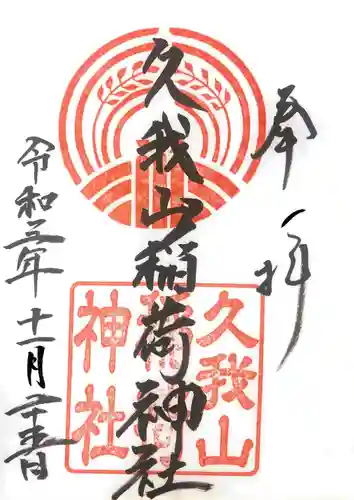 奉拝
久我山稲荷神社
令和三年十一月二十五日
久我山
稲荷
神社